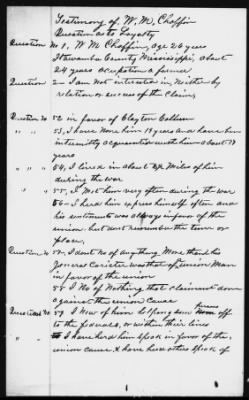 Testimony of W. M. Cheffin
Question as to Loyalty
Question No 1, W M Cheffin, age 26 years
Itawamba County Mississippi, about
24 years occupation a farmer
Question 2 - I am not intrested in Neither by
relation or sucsess of the claim,
Question No 52 in favor of Clayton Cullum
" " 53, I have None him 19 years and have bin
intemitly acquainted with him about 17
years
" " 54, I lived in about Miles of him
during the war
" " 55, I Met him very often during the war
56 - I herd him express himself often and
his sentiments was always in favor of the
union but dont remember the time or
place,
Question No 57, I dont No of any thing More than his
General Caricter was that of union Man
in favor of the union
58 I No of Nothing that claimant don
against the union Cause
Question No 59 I Now of him helping some off
to the federals, or within their lines
" " I have herd him speak in favor of the
union cause, & have herd others speak of